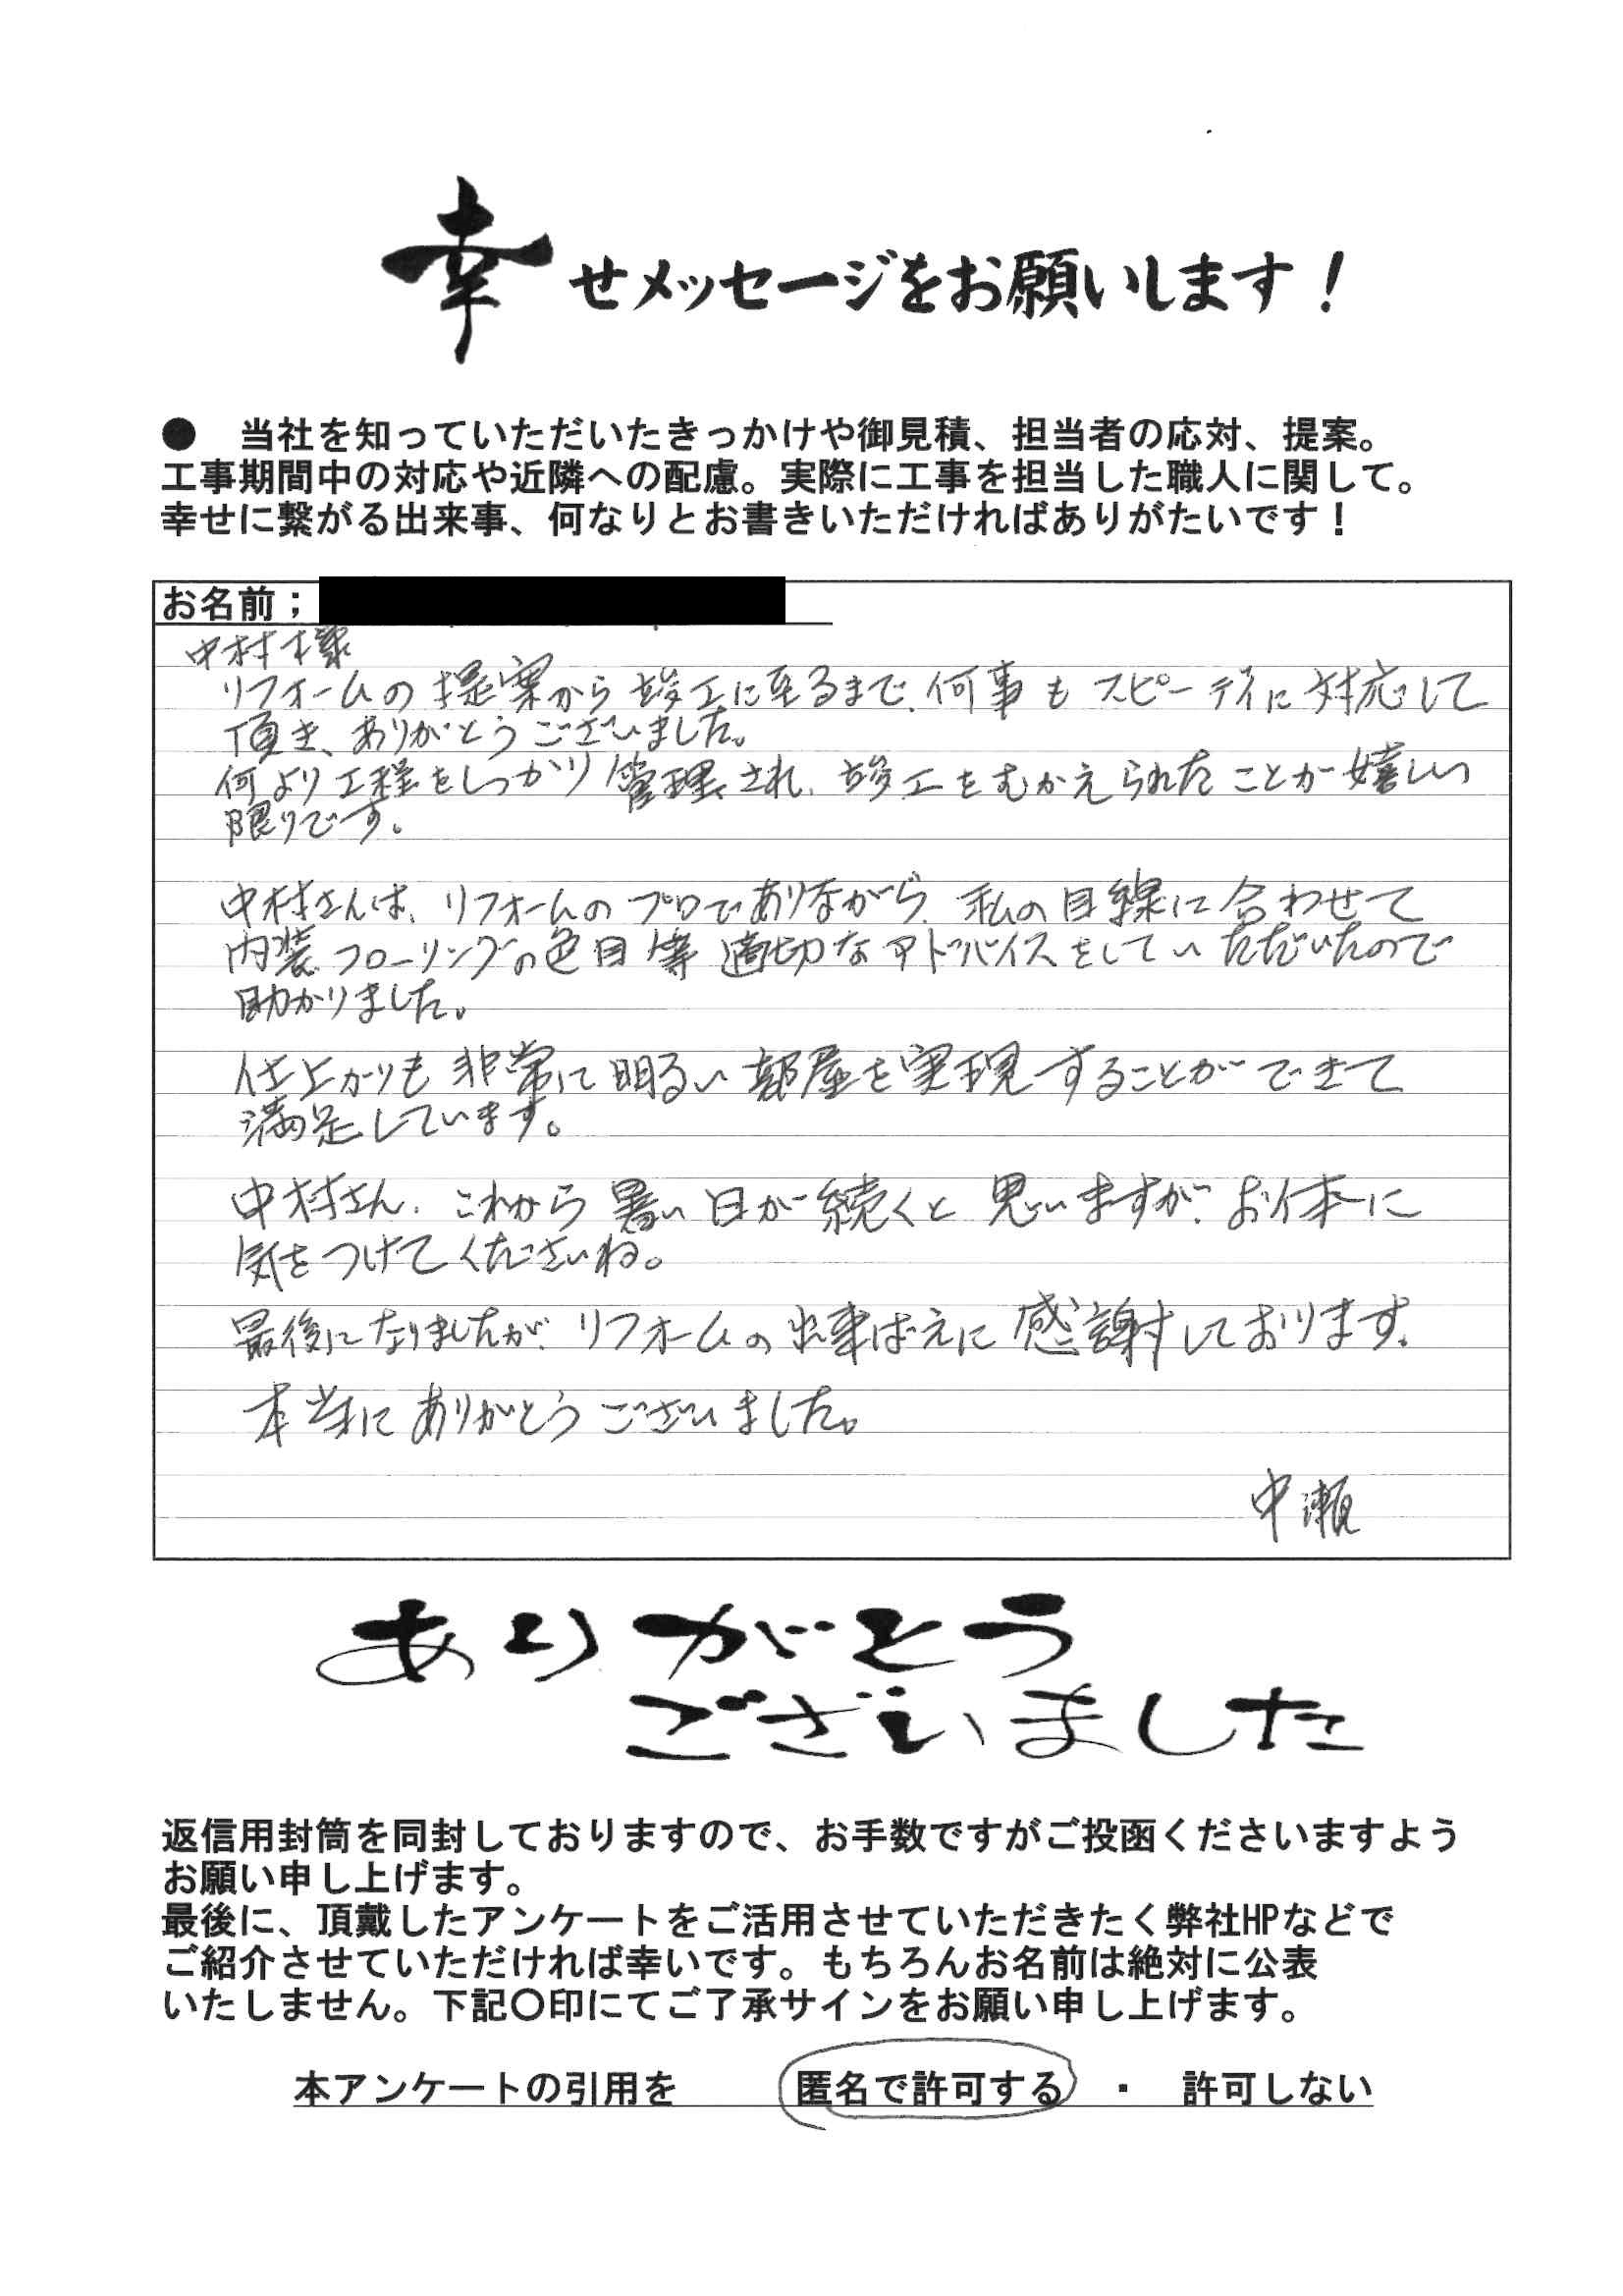 幸せメッセージをお願いします！
●　当社を知っていただいたきっかけや御見積、担当者の応対、提案。
工事期間中の対応や近隣への配慮。実際に工事を担当した職人に関して。
幸せに繋がる出来事、何なりとお書きいただければありがたいです！
お名前；
中村様
リフォームの提案から竣工に至るまで、何事もスピーディに対応して
頂き、ありがとうございました。
何より工程をしっかり管理され、竣工をむかえられたことが嬉しい
限りです。
中村さんは、リフォームのプロでありながら、私の目線に合わせて
内装フローリングの色目等適切なアドバイスをしていただいたので
助かりました。
仕上がりも非常に明るい部屋を実現することができて
満足しています。
中村さん、これから暑い日が続くと思いますが、お体に
気をつけてくださいね。
最後になりましたが、リフォームの出来ばえに感謝しております。
本当にありがとうございました。
中瀬
ありがとう
ございました
返信用封筒を同封しておりますので、お手数ですがご投函くださいますよう
お願い申し上げます。
最後に、頂戴したアンケートをご活用させていただきたく弊社HPなどで
ご紹介させていただければ幸いです。もちろんお名前は絶対に公表
いたしません。下記〇印にてご了承サインをお願い申し上げます。
本アンケートの引用を　匿名で許可する　・　許可しない